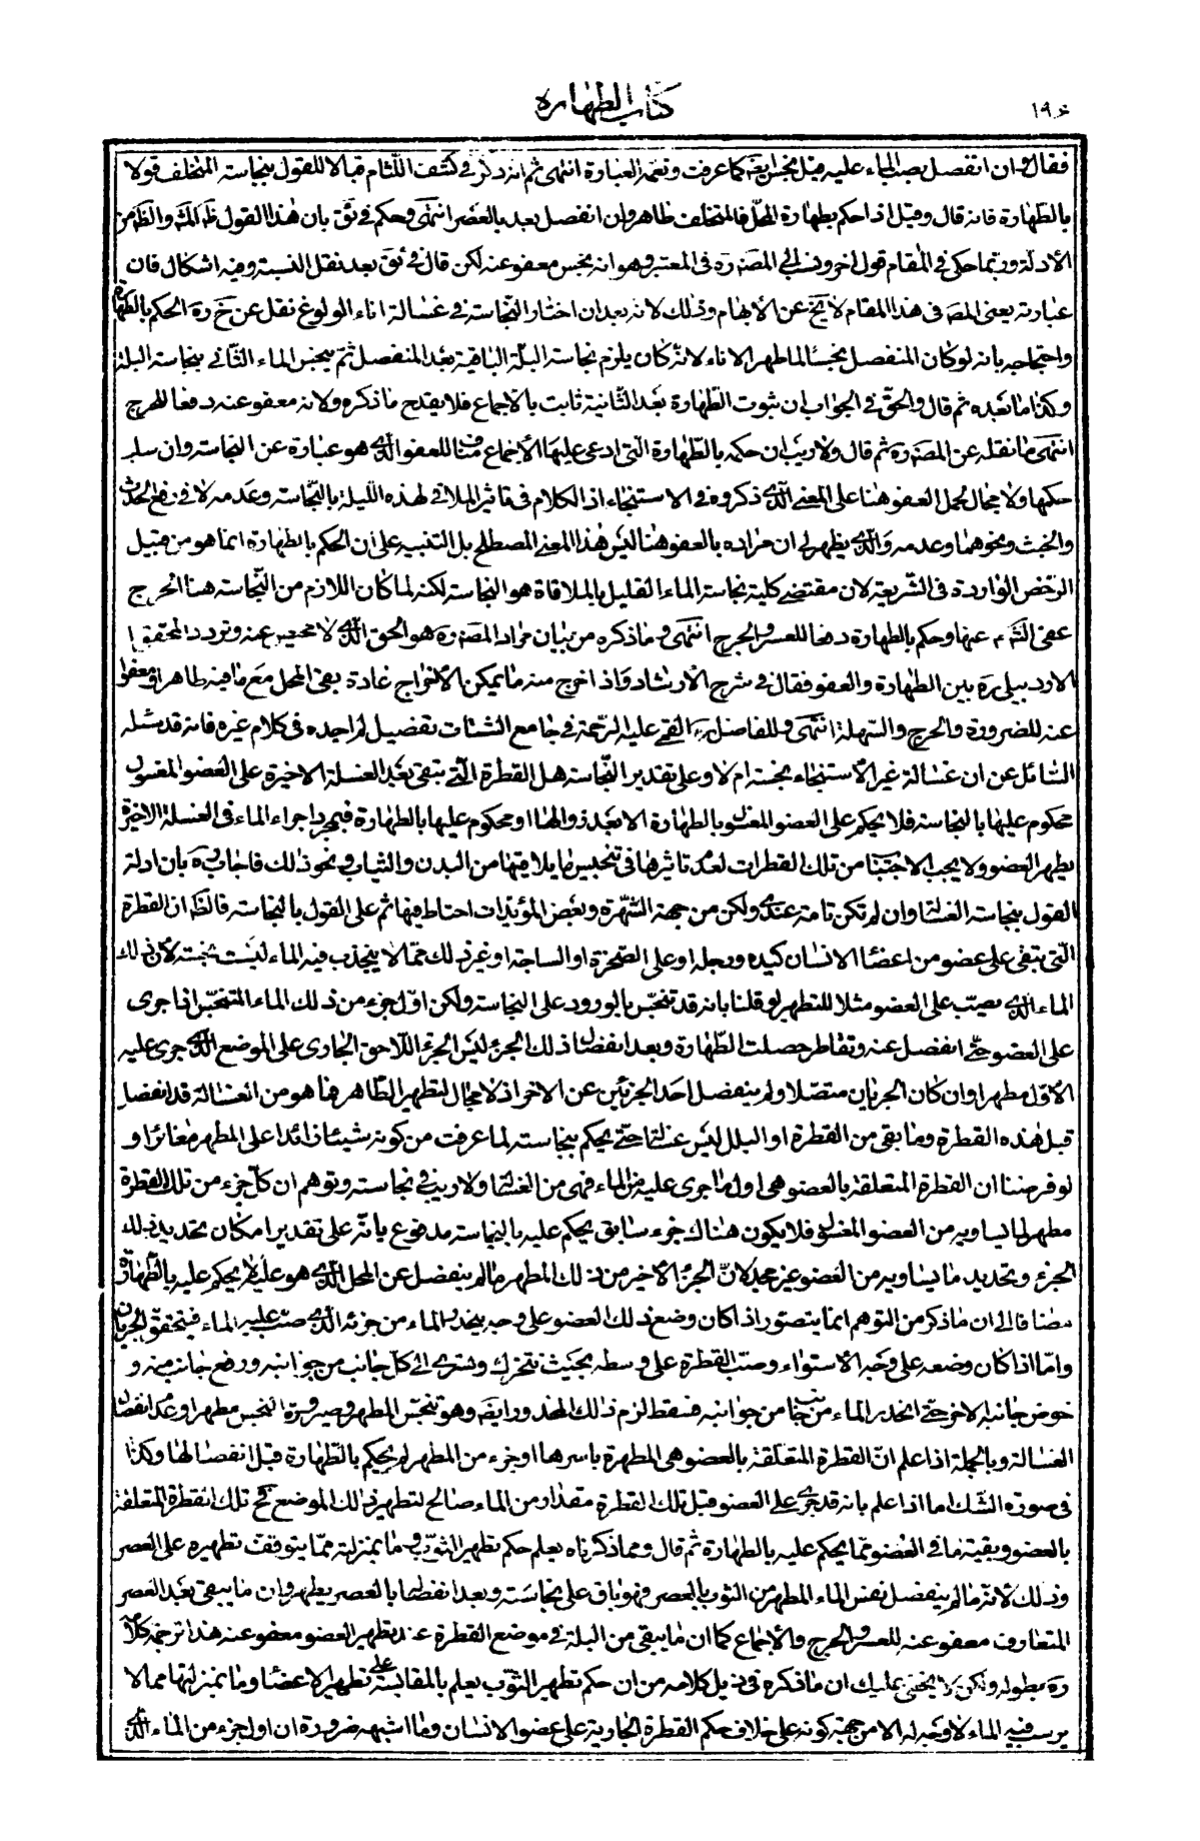 ١٩٠
كتاب الطهارة
فقال وان انفصل بصب الماء عليه قبل بخس ايضا كما عرفت ونعمه العبارة انتهى ثم انه ذكر في كشف اللثام مقابلا للقول بنجاسة المتخلف قولا
بالطهارة فانه قال وقيل اذا حكم بطهارة المحل فالمتخلف طاهر وان انفصل بعد بالعصر انتهى وحكم في ئق بان هذا القول ظ المك والظ من
الأدلة وربما حكى في المقام قول اخر ونسب الى المصنف ره في المعتبر وهو انه نجس معفو عنه لكن قال في ئق بعد نقل النسبة وفيه اشكال فان
عبارته يعني المصنف في هذا المقام لا يخ عن الأبهام وذلك لانه بعد ان اختار النجاسة في غسالة اناء الولوغ نقل عن خ ره الحكم بالطهارة
واحتجاجه بانه لو كان المنفصل نجسا لما طهر الاناء لانه كان يلزم نجاسة البلة الباقية بعد المنفصل ثم ينجس الماء الثاني بنجاسة البلة
وكذا ما بعده ثم قال والحق في الجواب ان ثبوت الطهارة بعد الثانية ثابت بالاجماع فلا يقدح ما ذكره ولانه معفو عنه دفعا للحرج
انتهى ما نقله عن المصنف ره ثم قال ولا ريب ان حكمه بالطهارة التي ادعى عليها الأجماع مناف للعفو الذي هو عبارة عن النجاسة وان سلب
حكمها ولا مجال لحمل العفو هنا على المعنى الذي ذكروه في الاستنجاء اذ الكلام في تاثير الملاقي لهذه البلة بالنجاسة وعدمه لا في رفع الحدث
والخبث ونحوهما وعدمه والذي يظهر لي ان مراده بالعفو هنا ليس هذا المعنى المصطلح بل التنبيه على ان الحكم بالطهارة انما هو من قبيل
الرخص الواردة في الشريعة لان مقتضى كلية نجاسة الماء القليل بالملاقاة هو النجاسة لكنه لما كان اللازم من النجاسة هنا الحرج
عفى الشرع عنها وحكم بالطهارة دفعا للعسر والحرج انتهى وما ذكره من بيان مراد المصنف ره هو الحق الذي لا محيص عنه وتردد المحقق
الاردبيلي ره بين الطهارة والعفو فقال في شرح الأرشاد واذا اخرج منه ما يمكن الأخراج عادة بقى المحل مع ما فيه طاهرا او معفوا
عنه للضرورة والحرج والسهلة انتهى وللفاضل القمي عليه الرحمة في جامع الشتات تفصيل لم اجده في كلام غيره فانه قد سئله
السائل عن ان غسالة غير الأستنجاء نجسة ام لا وعلى تقدير النجاسة هل القطرة التي تبقى بعد الغسلة الاخيرة على العضو المغسول
محكوم عليها بالنجاسة فلا يحكم على العضو المغسول بالطهارة الا بعد زوالها او محكوم عليها بالطهارة فبمجرد اجراء الماء في الغسلة الاخيرة
يطهر العضو ولا يجب الاجتناب من تلك القطرات لعدم تاثيرها في تنجيس ما يلاقيها من البدن والثياب ونحو ذلك فاجاب ره بان ادلة
القول بنجاسة الغسالة وان لم تكن تامة عندي ولكن من جهة الشهرة وبعض المؤيدات احتاط فيها ثم على القول بالنجاسة فالظ ان القطرة
التي تبقى على عضو من اعضاء الانسان كيده ورجله او على الصخرة او الساجة او غير ذلك مما لا ينجذب فيه الماء ليست بنجسة لأن ذلك
الماء الذي يصب على العضو مثلا للتطهير لو قلنا بانه قد تنجس بالورود على النجاسة ولكن اول جزء من ذلك الماء المتنجس اذا جرى
على العضو حتى انفصل عنه وتقاطر حصلت الطهارة وبعد انفصال ذلك الجزء ليس الجزء اللاحق الجاري على الموضع الذي جرى عليه
الأول مطهرا وان كان الجريان متصلا ولم ينفصل احد الجزئين عن الاخر اذ لا مجال لتطهير الطاهر فما هو من الغسالة قد انفصل
قبل هذه القطرة وما بقى من القطرة او البلل ليس غسالة حتى يحكم بنجاسته لما عرفت من كونه شيئا زائدا على المطهر مغائرا و
لو فرضنا ان القطرة المتعلقة بالعضو هي اول ما جرى عليه من الماء فهي من الغسالة ولا ريب في نجاسته وتوهم ان كل جزء من تلك القطرة
مطهر لما يساويه من العضو المغسول فلا يكون هناك جزء سابق يحكم عليه بالنجاسة مدفوع بانه على تقدير امكان تحديد ذلك
الجزء وتحديد ما يساويه من العضو غير مجد لان الجزء الأخير من ذلك المطهر ما لم ينفصل عن المحل الذي هو عليه لم يحكم عليه بالطهارة
مضافا الى ان ما ذكر من التوهم انما يتصور اذا كان وضع ذلك العضو على وجه ينحدر الماء من جزئه الذي صب عليه الماء فيتحقق الجريان
واما اذا كان وضعه على وجه الأستواء وصب القطرة على وسطه بحيث تتحرك وتسري الى كل جانب من جوانبه ورفع جانب منه و
خفض جانبه الاخر حتى انحدر الماء من جانب من جوانبه فسقط لزم ذلك المحذور ايضا وهو تنجس المطهر وصيرورة النجس مطهرا وعدم انفصال
الغسالة وبالجملة اذا علم ان القطرة المتعلقة بالعضو هي المطهرة باسرها او جزء من المطهر لم يحكم بالطهارة قبل انفصالها وكذا
في صورة الشك اما اذا علم بانه قد جرى على العضو قبل تلك القطرة مقدار من الماء صالح لتطهير ذلك الموضع فح تلك القطرة المتعلقة
بالعضو وبقية ما في العضو مما يحكم عليه بالطهارة ثم قال ومما ذكرناه يعلم حكم تطهير الثوب وما بمنزلته مما يتوقف تطهيره على العصر
وذلك لانه ما لم ينفصل نفس الماء المطهر من الثوب بالعصر فهو باق على نجاسته وبعد انفصالها بالعصر يطهر وان ما يبقى بعد العصر
المتعارف معفو عنه للعسر والحرج والأجماع كما ان ما يبقى من البلة في موضع القطرة عند تطهير العضو معفو عنه هذا ترجمة كلامه
ره بطوله ولكن لا يخفى عليك ان ما ذكره في ذيل كلامه من ان حكم تطهير الثوب يعلم بالمقايسة على تطهير الاعضاء وما بمنزلتها مما لا
يرسب فيه الماء لا وجه له الا من جهة كونه على خلاف حكم القطرة الجارية على عضو الانسان وما اشبهه ضرورة ان اول جزء من الماء الذي